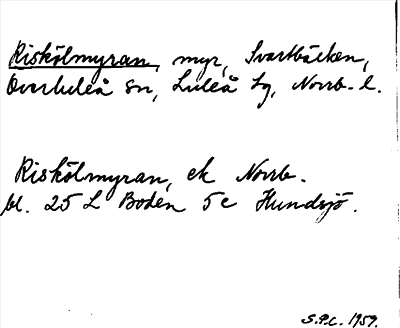 Riskölmyran, myr, Svartbäcken,
Överluleå sn, Luleå tg, Norrb. l.
Riskölmyran, ek Norrb.
bl. 25 L Boden 5c Hundsjö.
S.P.L. 1959.